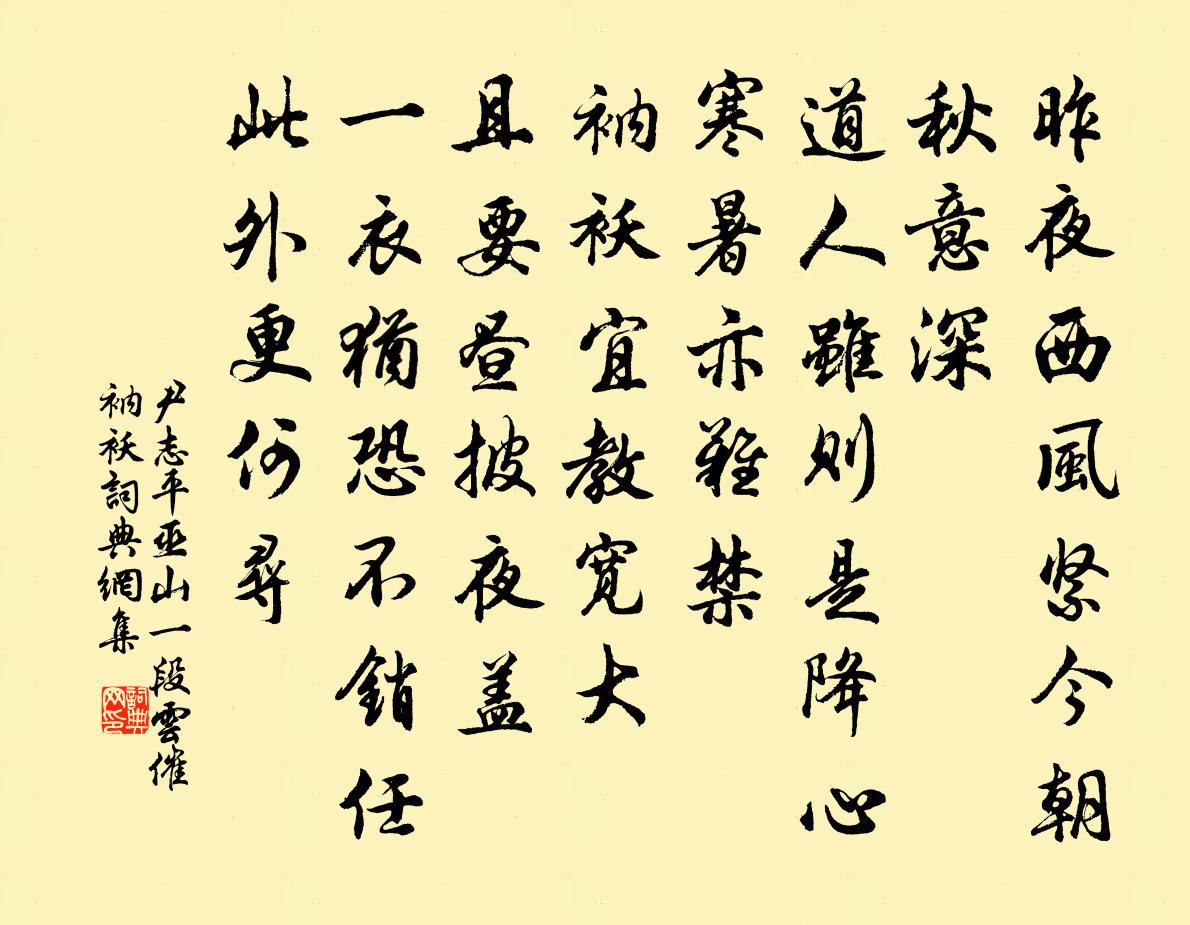 昨夜西風緊今朝
秋意深
道人雖則是降心
寒暑亦難禁
衲袄宜教寛大
且要昼披夜盖
一衣猶恐不銷任
此外更何尋
尹志平巫山一段雲催
衲袄詞典網集
詞典网印